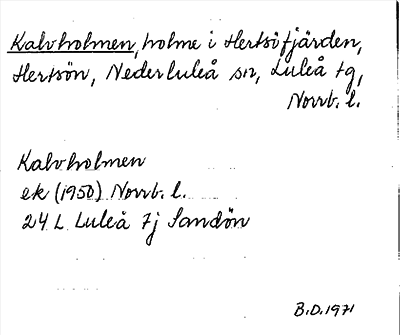 Kalvholmen, holme i Hertsöfjärden,
Hertsön, Nederluleå sn, Luleå tg,
Norrb. l.
Kalvholmen
ek (1950) Norrb. l.
24 L Luleå 7j Sandön
B.D. 1971